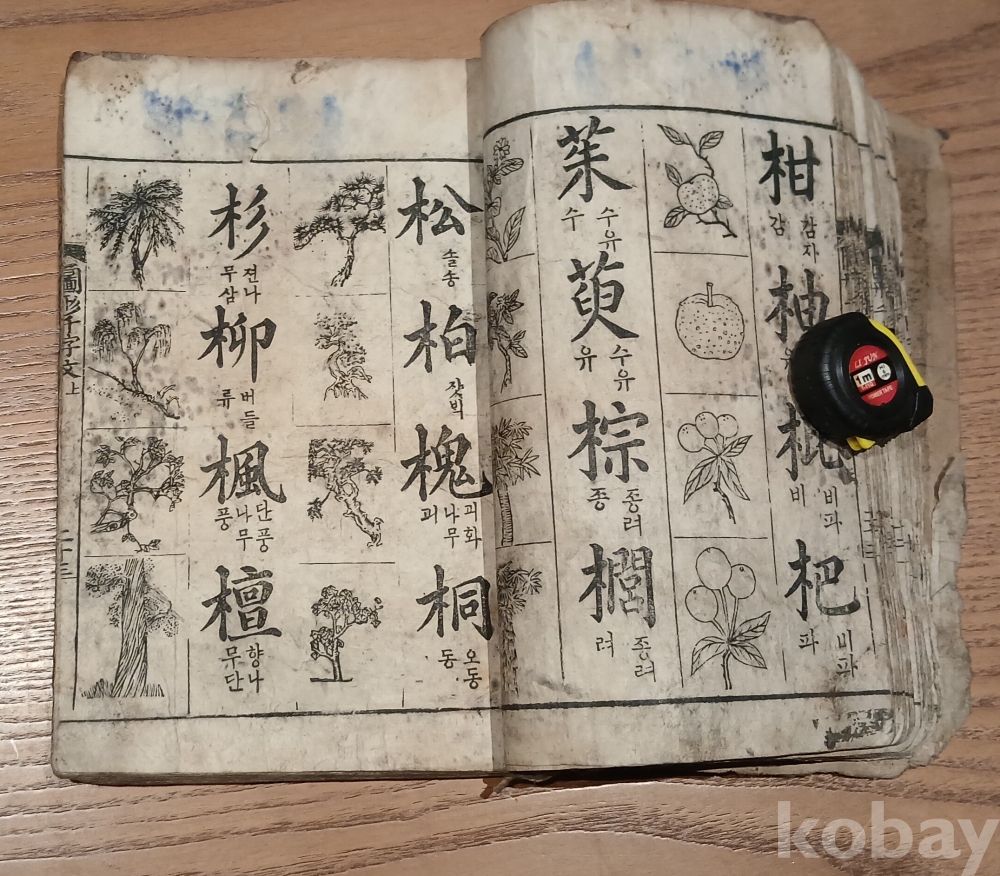 柑
감자
감
柚
枇
비파
비
杷
비파
파
茱
수유
수
萸
수유
유
棕
종려
종
櫚
종려
려
松
솔송
柏
槐
괴화
나무
괴
桐
오동
동
杉
젼나
무삼
柳
버들
류
楓
단풍
나무
풍
檀
향나
무단
圖形千字文 上
二十三
LI JUN
1m
kobay